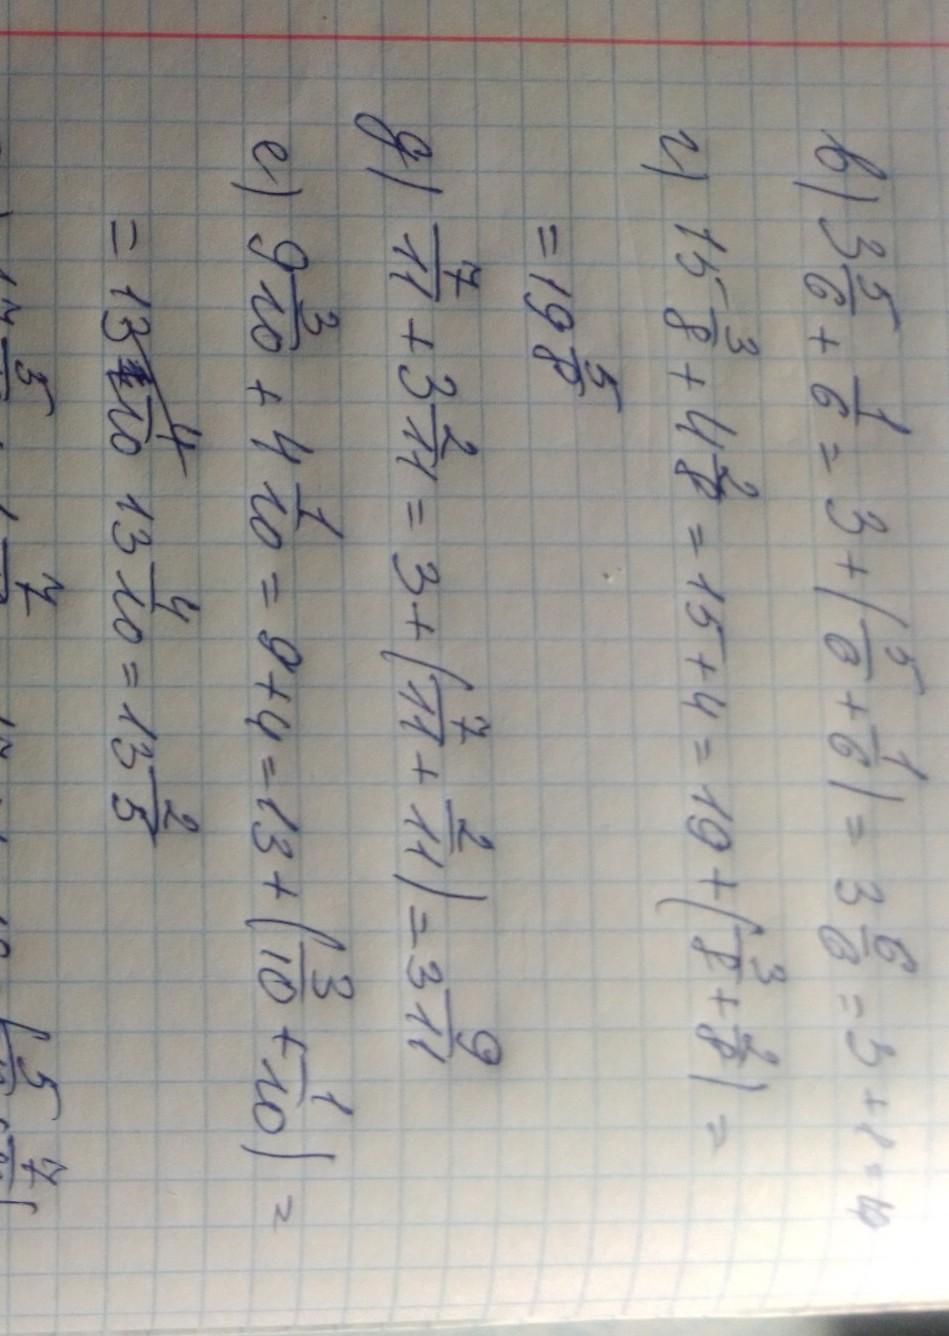 в) 3 5/6 + 1/6 = 3 + (5/6 + 1/6) = 3 6/6 = 3 + 1 = 4
г) 15 3/8 + 4 2/8 = 15 + 4 = 19 + (3/8 + 2/8) =
= 19 5/8
д) 7/11 + 3 2/11 = 3 + (7/11 + 2/11) = 3 9/11
е) 9 3/10 + 4 1/10 = 9 + 4 = 13 + (3/10 + 1/10) =
= 13 4/10 13 4/10 = 13 2/5